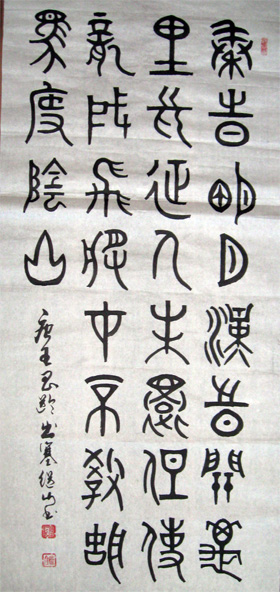 秦旹明月漢旹關萬
里長征人未還但使
龍城飛將在不教胡
馬度陰山
唐王昌齡出塞